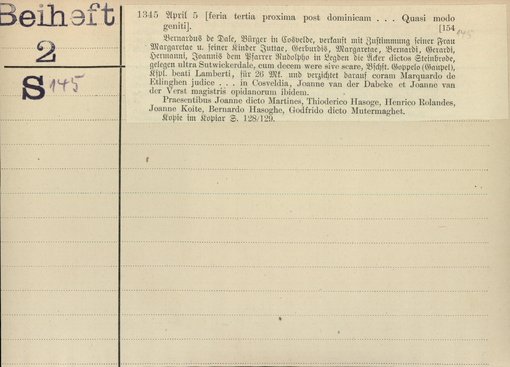 Beiheft
2
S 145
1345 April 5 [feria tertia proxima post dominicam . . . Quasi modo
geniti]. [154
145
Bernardus de Dale, Bürger in Cosvelde, verkauft mit Zustimmung seiner Frau
Margaretae u. seiner Kinder Juttae, Gerburdis, Margaretae, Bernardi, Gerardi,
Hermanni, Joannis dem Pfarrer Rudolpho in Legden die Äcker dictos Steinbrede,
gelegen ultra Sutwickerdale, cum decem were sive scare, Bschft. Goppelo (Gaupel),
Kspl. beati Lamberti, für 26 Mk. und verzichtet darauf coram Marquardo de
Etlinghen judice . . . . in Cosveldia, Joanne van der Dabeke et Joanne van
der Verst magistris opidanorum ibidem.
Praesentibus Joanne dicto Martines, Thioderico Hasoge, Henrico Rolandes,
Joanne Koite, Bernardo Hasoghe, Godfrido dicto Mutermaghet.
Kopie im Kopiar S. 128/129.